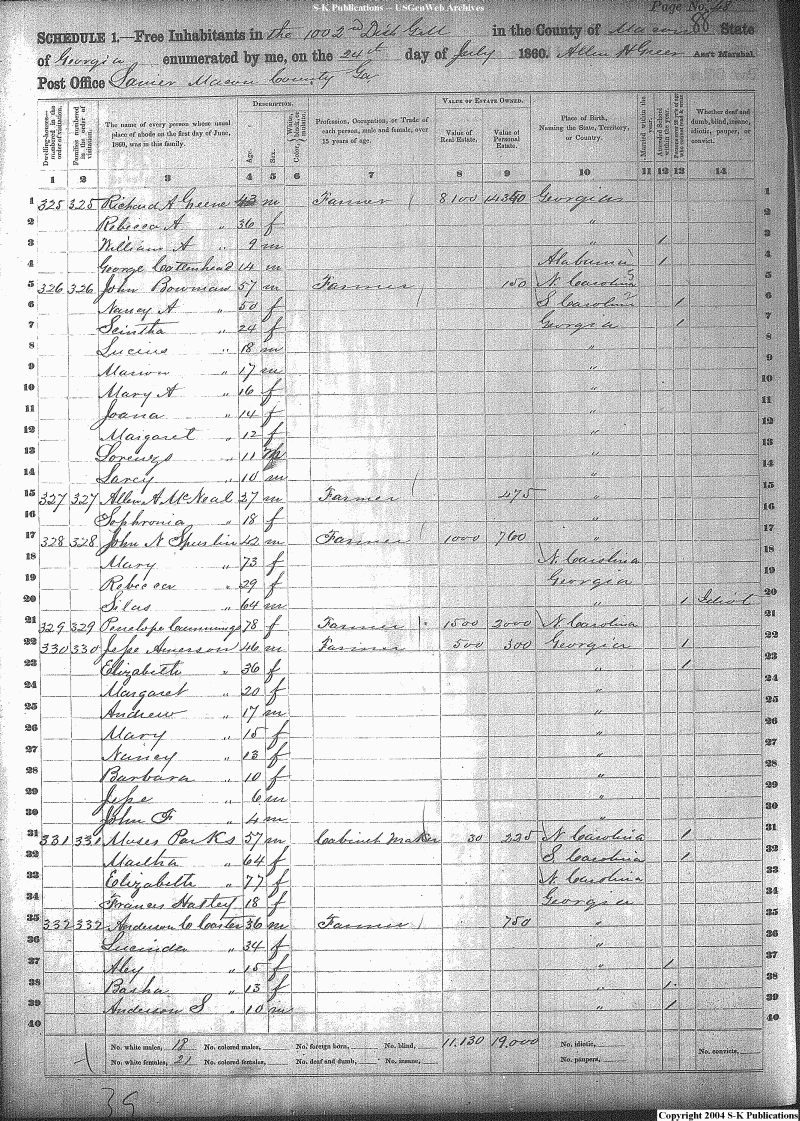 S-K Publications -- USGenWeb Archives
Page No. 48
88
SCHEDULE 1.—Free Inhabitants in the 1002nd Dist GM in the County of Macon State
of Georgia enumerated by me, on the 24th day of July 1860. Allen H Greer Ass't Marshal.
Post Office Lanier Macon County Ga
Dwelling-houses—numbered in the order of visitation. Families numbered in the order of visitation. The name of every person whose usual place of abode on the first day of June, 1860, was in this family. DESCRIPTION. Age. Sex. Color, White, black, or mulatto. Profession, Occupation, or Trade of each person, male and female, over 15 years of age. VALUE OF ESTATE OWNED. Value of Real Estate. Value of Personal Estate. Place of Birth, Naming the State, Territory, or Country. Married within the year. Attended School within the year. Whether deaf and dumb, blind, insane, idiotic, pauper, or convict.
1 2 3 4 5 6 7 8 9 10 11 12 13 14
1 325 325 Richard A Greene 43 m Farmer 8100 14340 Georgia 1
2 Rebecca A " 36 f " 2
3 William A " 9 m " 1 3
4 George Cottenhead 14 m Alabama 1 4
5 326 326 John Bowman 57 m Farmer 150 N. Carolina 5
6 Nancy A " 50 f S Carolina 1 6
7 Scintha " 24 f Georgia 1 7
8 Lucius " 18 m " 8
9 Marion " 17 m " 9
10 Mary A " 16 f " 10
11 Joana " 14 f " 11
12 Margaret " 12 f " 12
13 Lorenzo " 11 m " 13
14 Larcy " 10 m " 14
15 327 327 Allen A McNeal 27 m Farmer 475 " 15
16 Sophronia " 18 f 16
17 328 328 John N Spurlin 42 m Farmer 1000 760 " 17
18 Mary " 73 f N. Carolina 18
19 Rebecca " 29 f Georgia 19
20 Silas " 64 m " 1 Idiot 20
21 329 329 Penelope Cummings 78 f Farmer 1500 3000 N. Carolina 21
22 330 330 Jesse Amerson 46 m Farmer 500 300 Georgia 1 22
23 Elizabeth " 36 f " 1 23
24 Margaret " 20 f " 24
25 Andrew " 17 m " 25
26 Mary " 15 f " 26
27 Nancy " 13 f " 27
28 Barbara " 10 f " 28
29 Jesse " 6 m " 29
30 John F " 4 m " 30
31 331 331 Moses Parks 57 m Cabinet Maker 30 225 N. Carolina 1 31
32 Martha " 64 f S. Carolina 1 32
33 Elizabeth " 77 f N. Carolina 33
34 Frances Hatley 18 f Georgia 34
35 332 332 Anderson C Carter 36 m Farmer 750 " 35
36 Lucinda " 34 f " 36
37 Aley " 15 f " 1 37
38 Basha " 13 f " 1 38
39 Anderson S " 10 m " 1 39
40 40
No. white males, 18 No. colored males, No. foreign born, No. blind, 11.130 19.000 No. idiotic,
No. white females, 21 No. colored females, No. deaf and dumb, No. insane, No. paupers, No. convicts,
39
Copyright 2004 S-K Publications